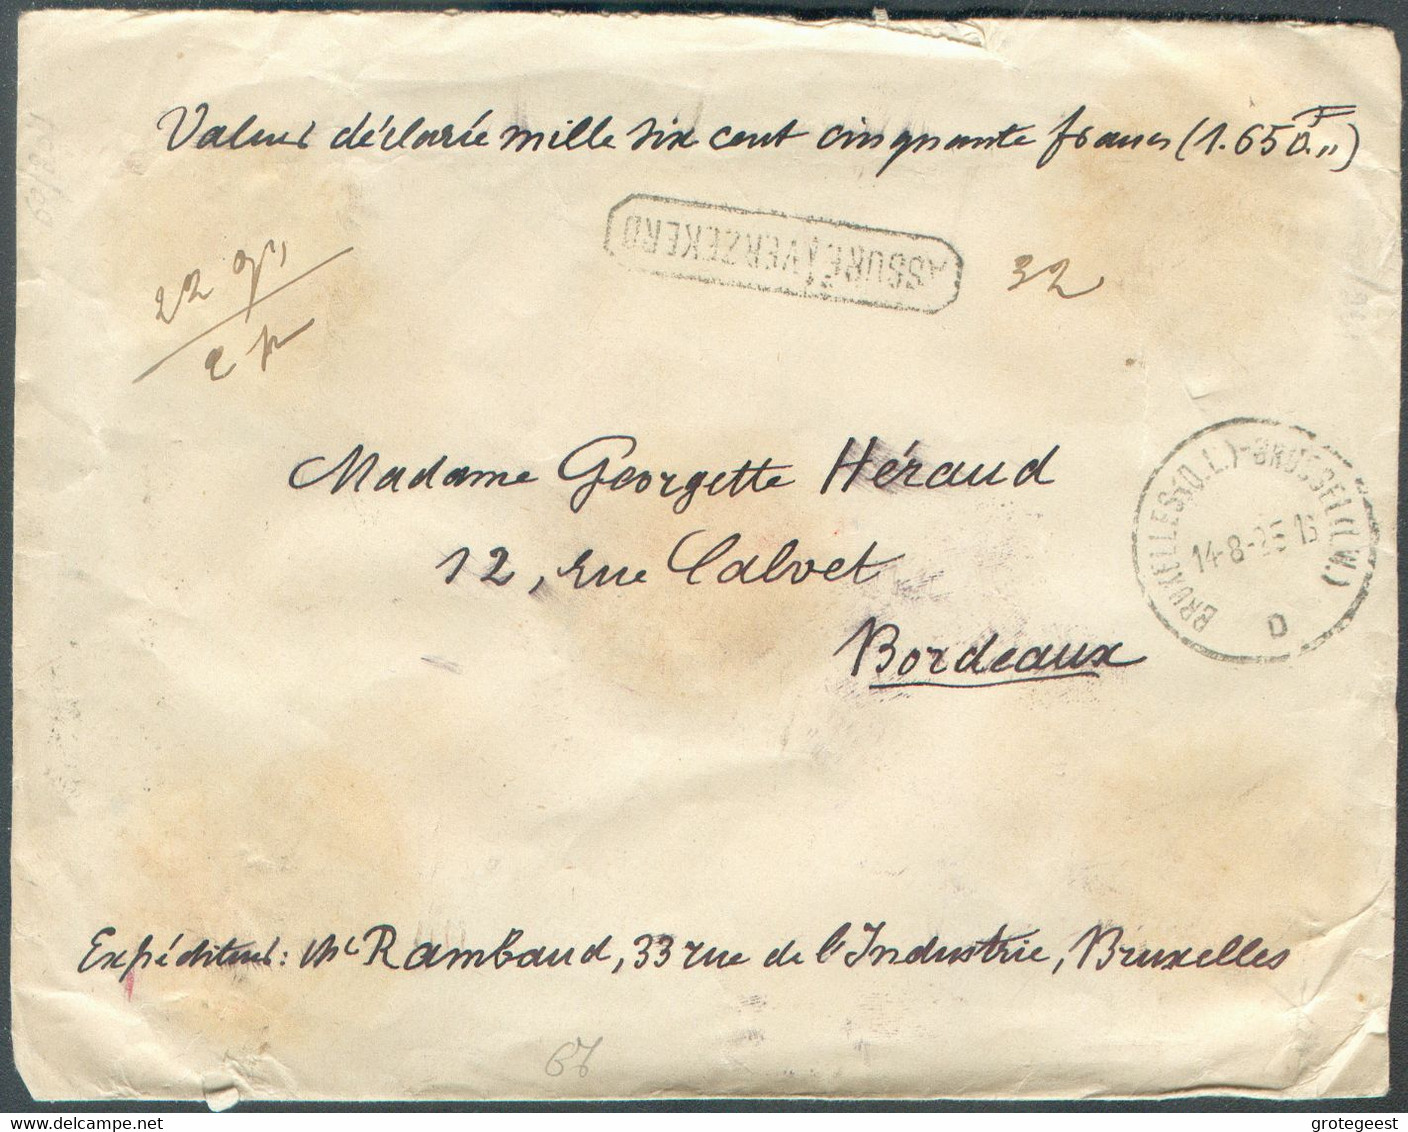 Valeur déclarée mille six cent cinquante francs (1.650F,,)
ASSURÉ/VERSEKERD
32
22 gr
2 p
Madame Georgette Héraud
12, rue Calvet
Bordeaux
BRUXELLES(Q.L.)-BRUSSEL(L.W.)
14-8-25 16
D
Expéditeur: Mr Rambaud, 33 rue de l'Industrie, Bruxelles
67
grotegeest